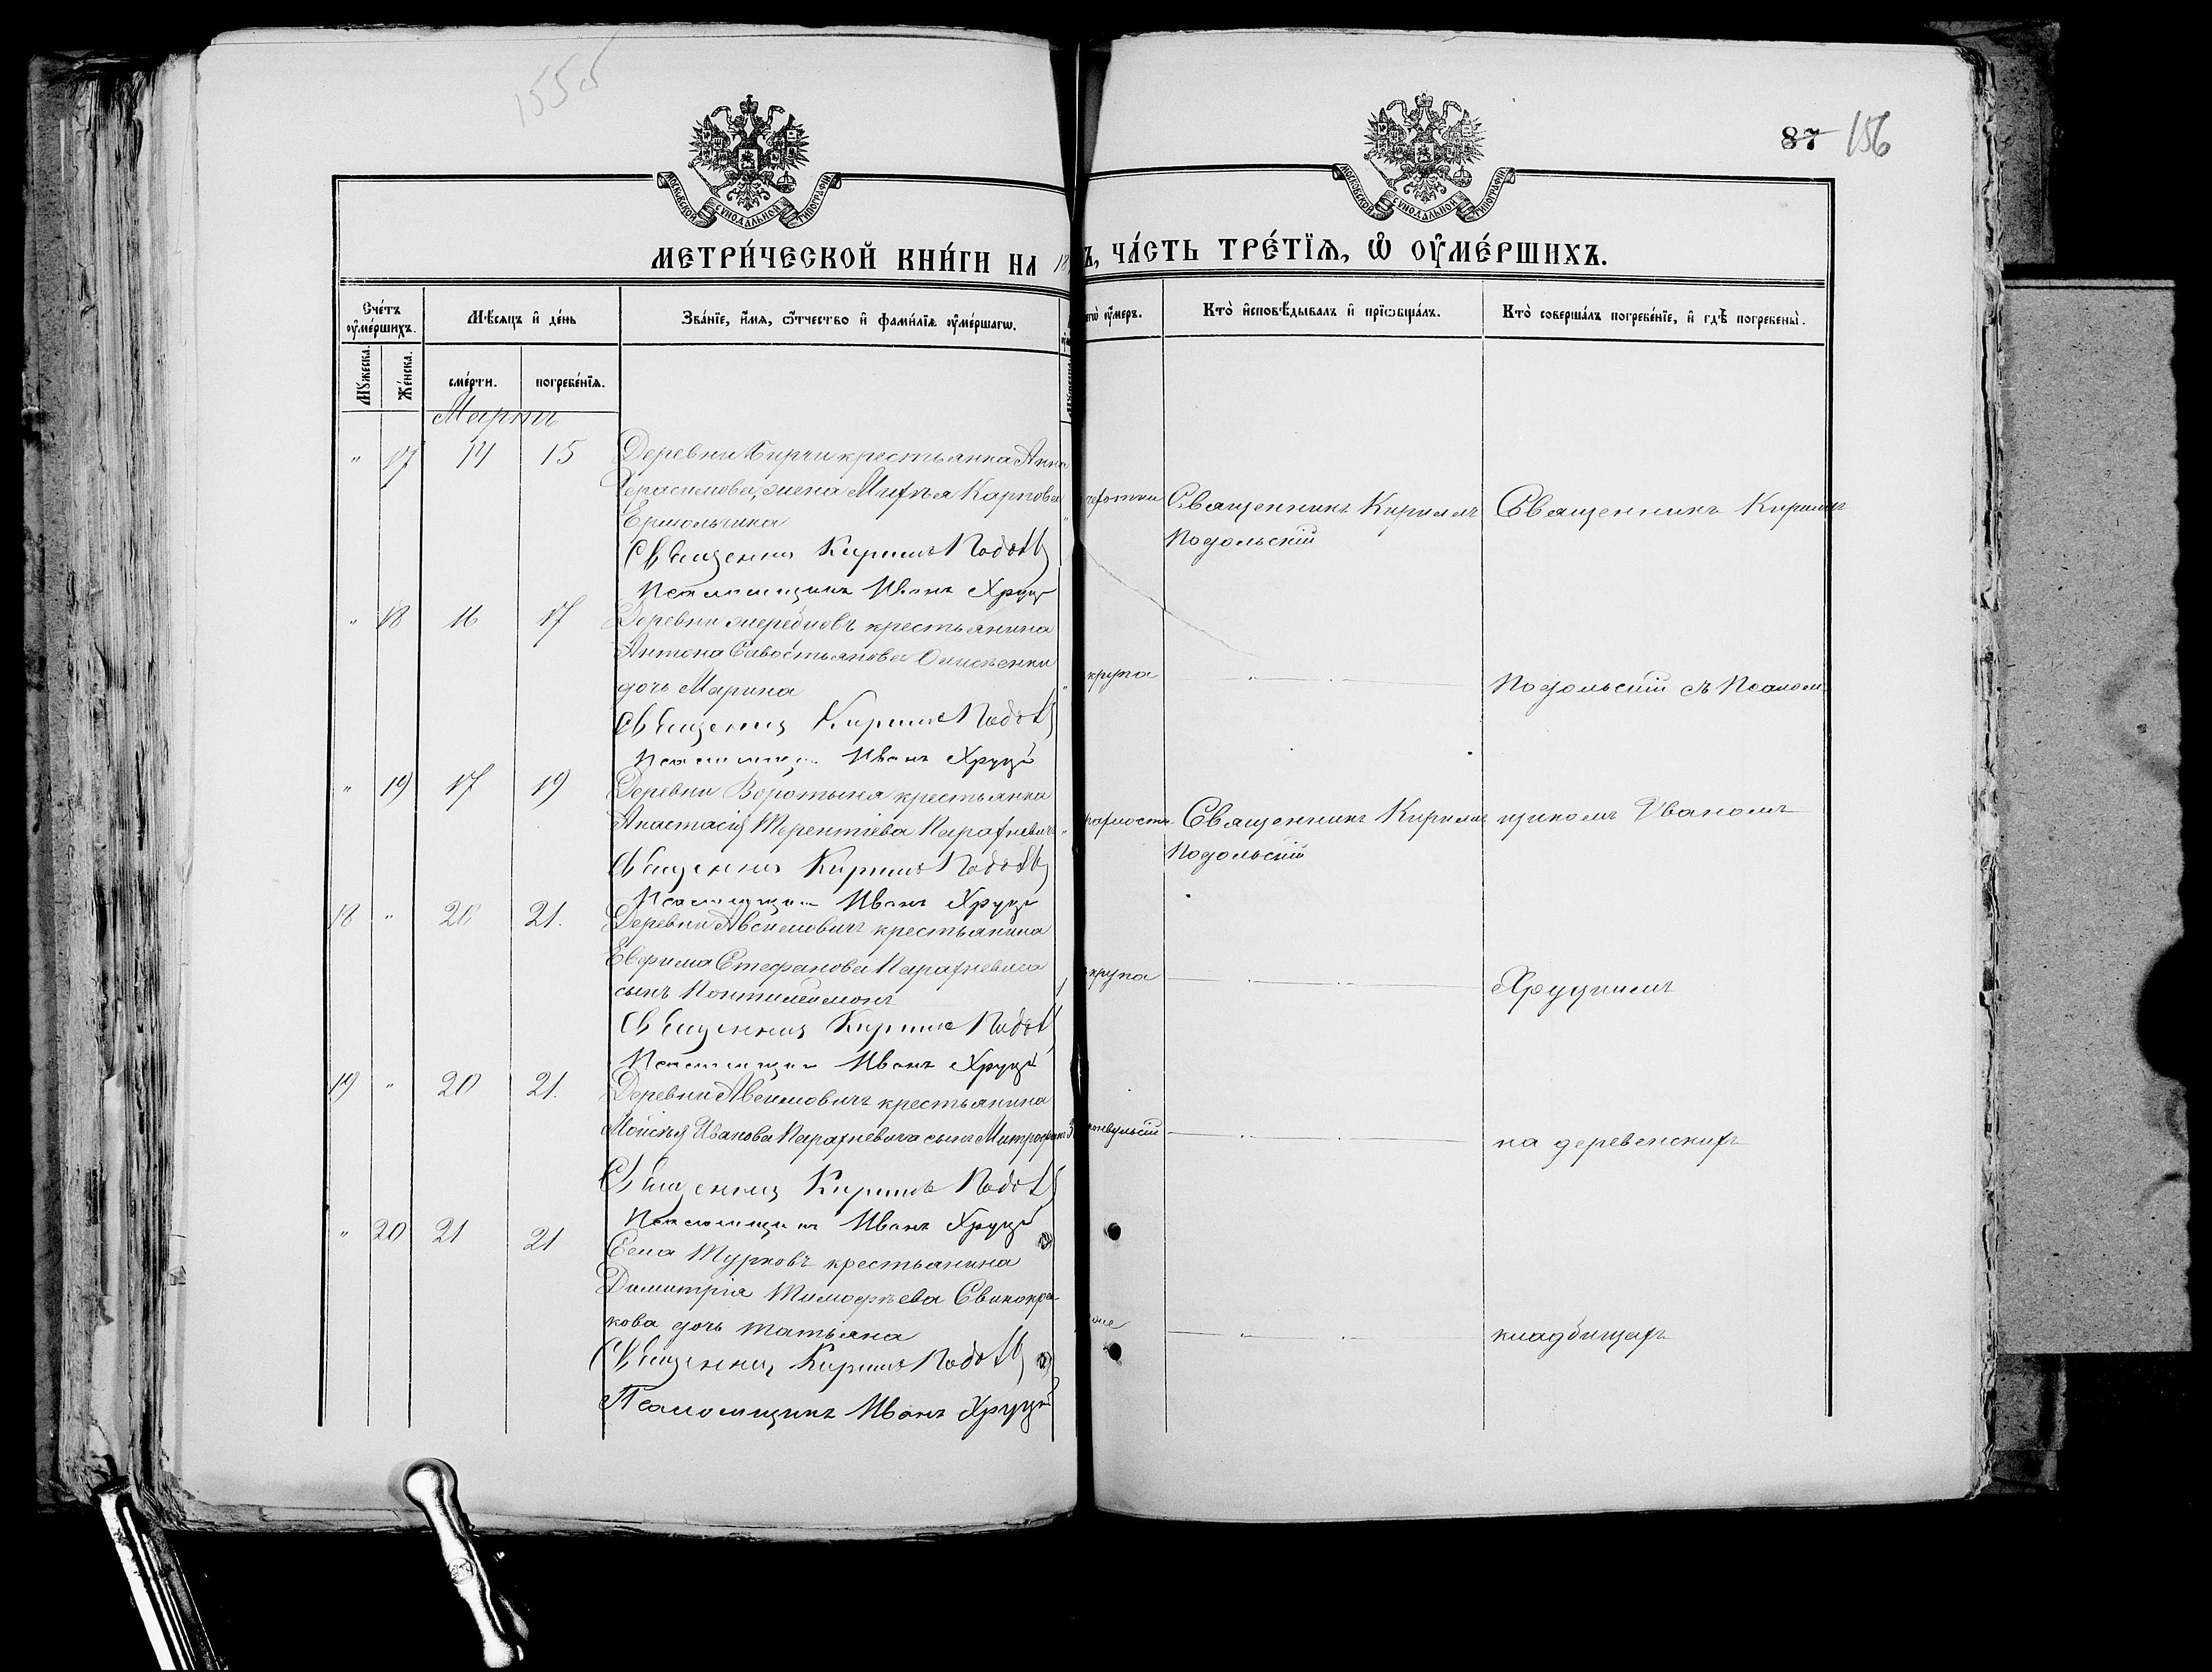 155 об
87 156
МОСКОВСКОЙ СУНОДАЛЬНОЙ ТИПОГРАФІИ
МОСКОВСКОЙ СУНОДАЛЬНОЙ ТИПОГРАФІИ
МЕТРИ́ЧЕСКОЙ КНИ́ГИ НА 18
Ъ, ЧА́СТЬ ТРЕ́ТЇѦ, Ѽ ОУ҆МЕ́РШИХЪ.
Сче́тъ оу҆ме́ршихъ.
Мꙋжеска. Же́нска.
Мѣ́сяцъ и҆ де́нь
сме́рти. погребе́нїѧ.
Зва́нїе, и҆́мя, ѻ҆́тчество и҆ фами́лїѧ оу҆ме́ршагѡ.
чегѡ̀ оу҆́меръ.
Кто̀ и҆сповѣ́дывалъ и҆ прїѡбща́лъ.
Кто̀ соверша́лъ погребе́нїе, и҆ гдѣ̀ погребены̀.
Мартъ
" 17 14 15 Деревни крестьянка Анна
Герасимова, жена Михѣя Карпова
Ермольчика
Священникъ Кириллъ Подол
Псаломщикъ Иванъ Хруц
чахотки Священникъ Кириллъ Подольскій
Священникъ Кириллъ
" 18 16 17 Деревни крестьянина
Антона Савостьянова
дочь Марина
Священникъ Кириллъ Подол
Псаломщикъ Иванъ Хруц
крупа — " — Подольскій съ Псалом-
" 19 17 19 Деревни Воротыня крестьянка
Анастасія Терентіева Карахневичъ
Священникъ Кириллъ Подол
Псаломщикъ Иванъ Хруц
Священникъ Кириллъ Подольскій
щикомъ Иваномъ
18 " 20 21. Деревни крестьянина
Евфима Стефанова Карахневича
сынъ Пантилеимонъ
Священникъ Кириллъ Подол
Псаломщикъ Иванъ Хруц
крупа — " —
Хруцкимъ
19 " 20 21. Деревни крестьянина
Моисѣя Иванова Карахневича сынъ Митрофанъ 3
Священникъ Кириллъ Подол
Псаломщикъ Иванъ Хруц
конвульсіи — " — на деревенскихъ
" 20 21 21 Села Турковъ крестьянина
Димитрія Тимофѣева
кова дочь Татьяна
Священникъ Кириллъ Подол
Псаломщикъ Иванъ Хруц
— " — кладбищахъ